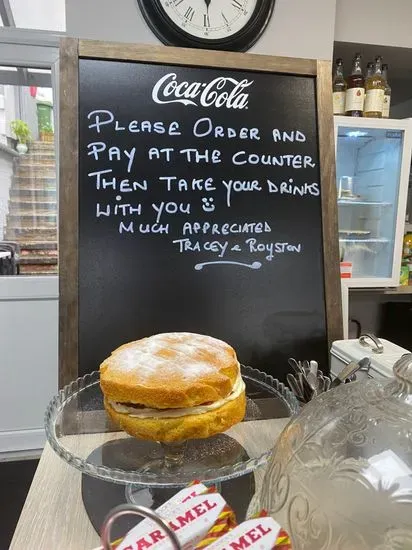 Coca-Cola
PLEASE ORDER AND
PAY AT THE COUNTER
THEN TAKE YOUR DRINKS
WITH YOU
MUCH APPRECIATED
TRACEY & ROYSTON
CARAMEL
CARAMEL